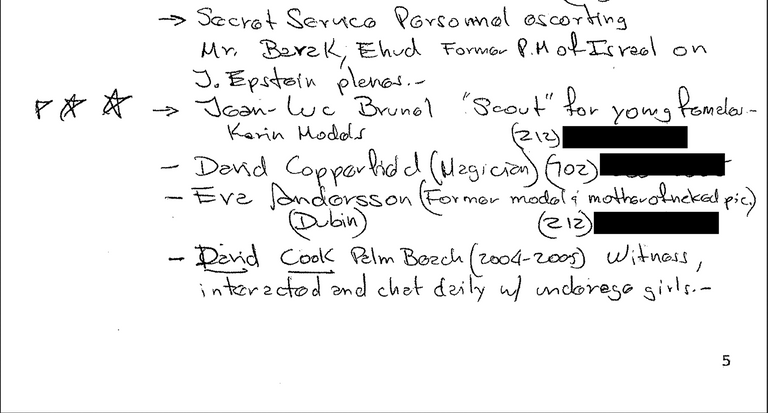 → Secret Service Personnel escorting
Mr. Barak, Ehud Former P.M of Israel on
J. Epstein planes.-
→ Jean-Luc Brunel "Scout" for young females.-
Karin Models (212)
- David Copperfield (Magician) (702)
- Eva Andersson (Former model & mother of naked pic.)
(Dubin) (212)
- David Cook Palm Beach (2004-2005) Witness,
interacted and chat daily w/ underage girls.-
5